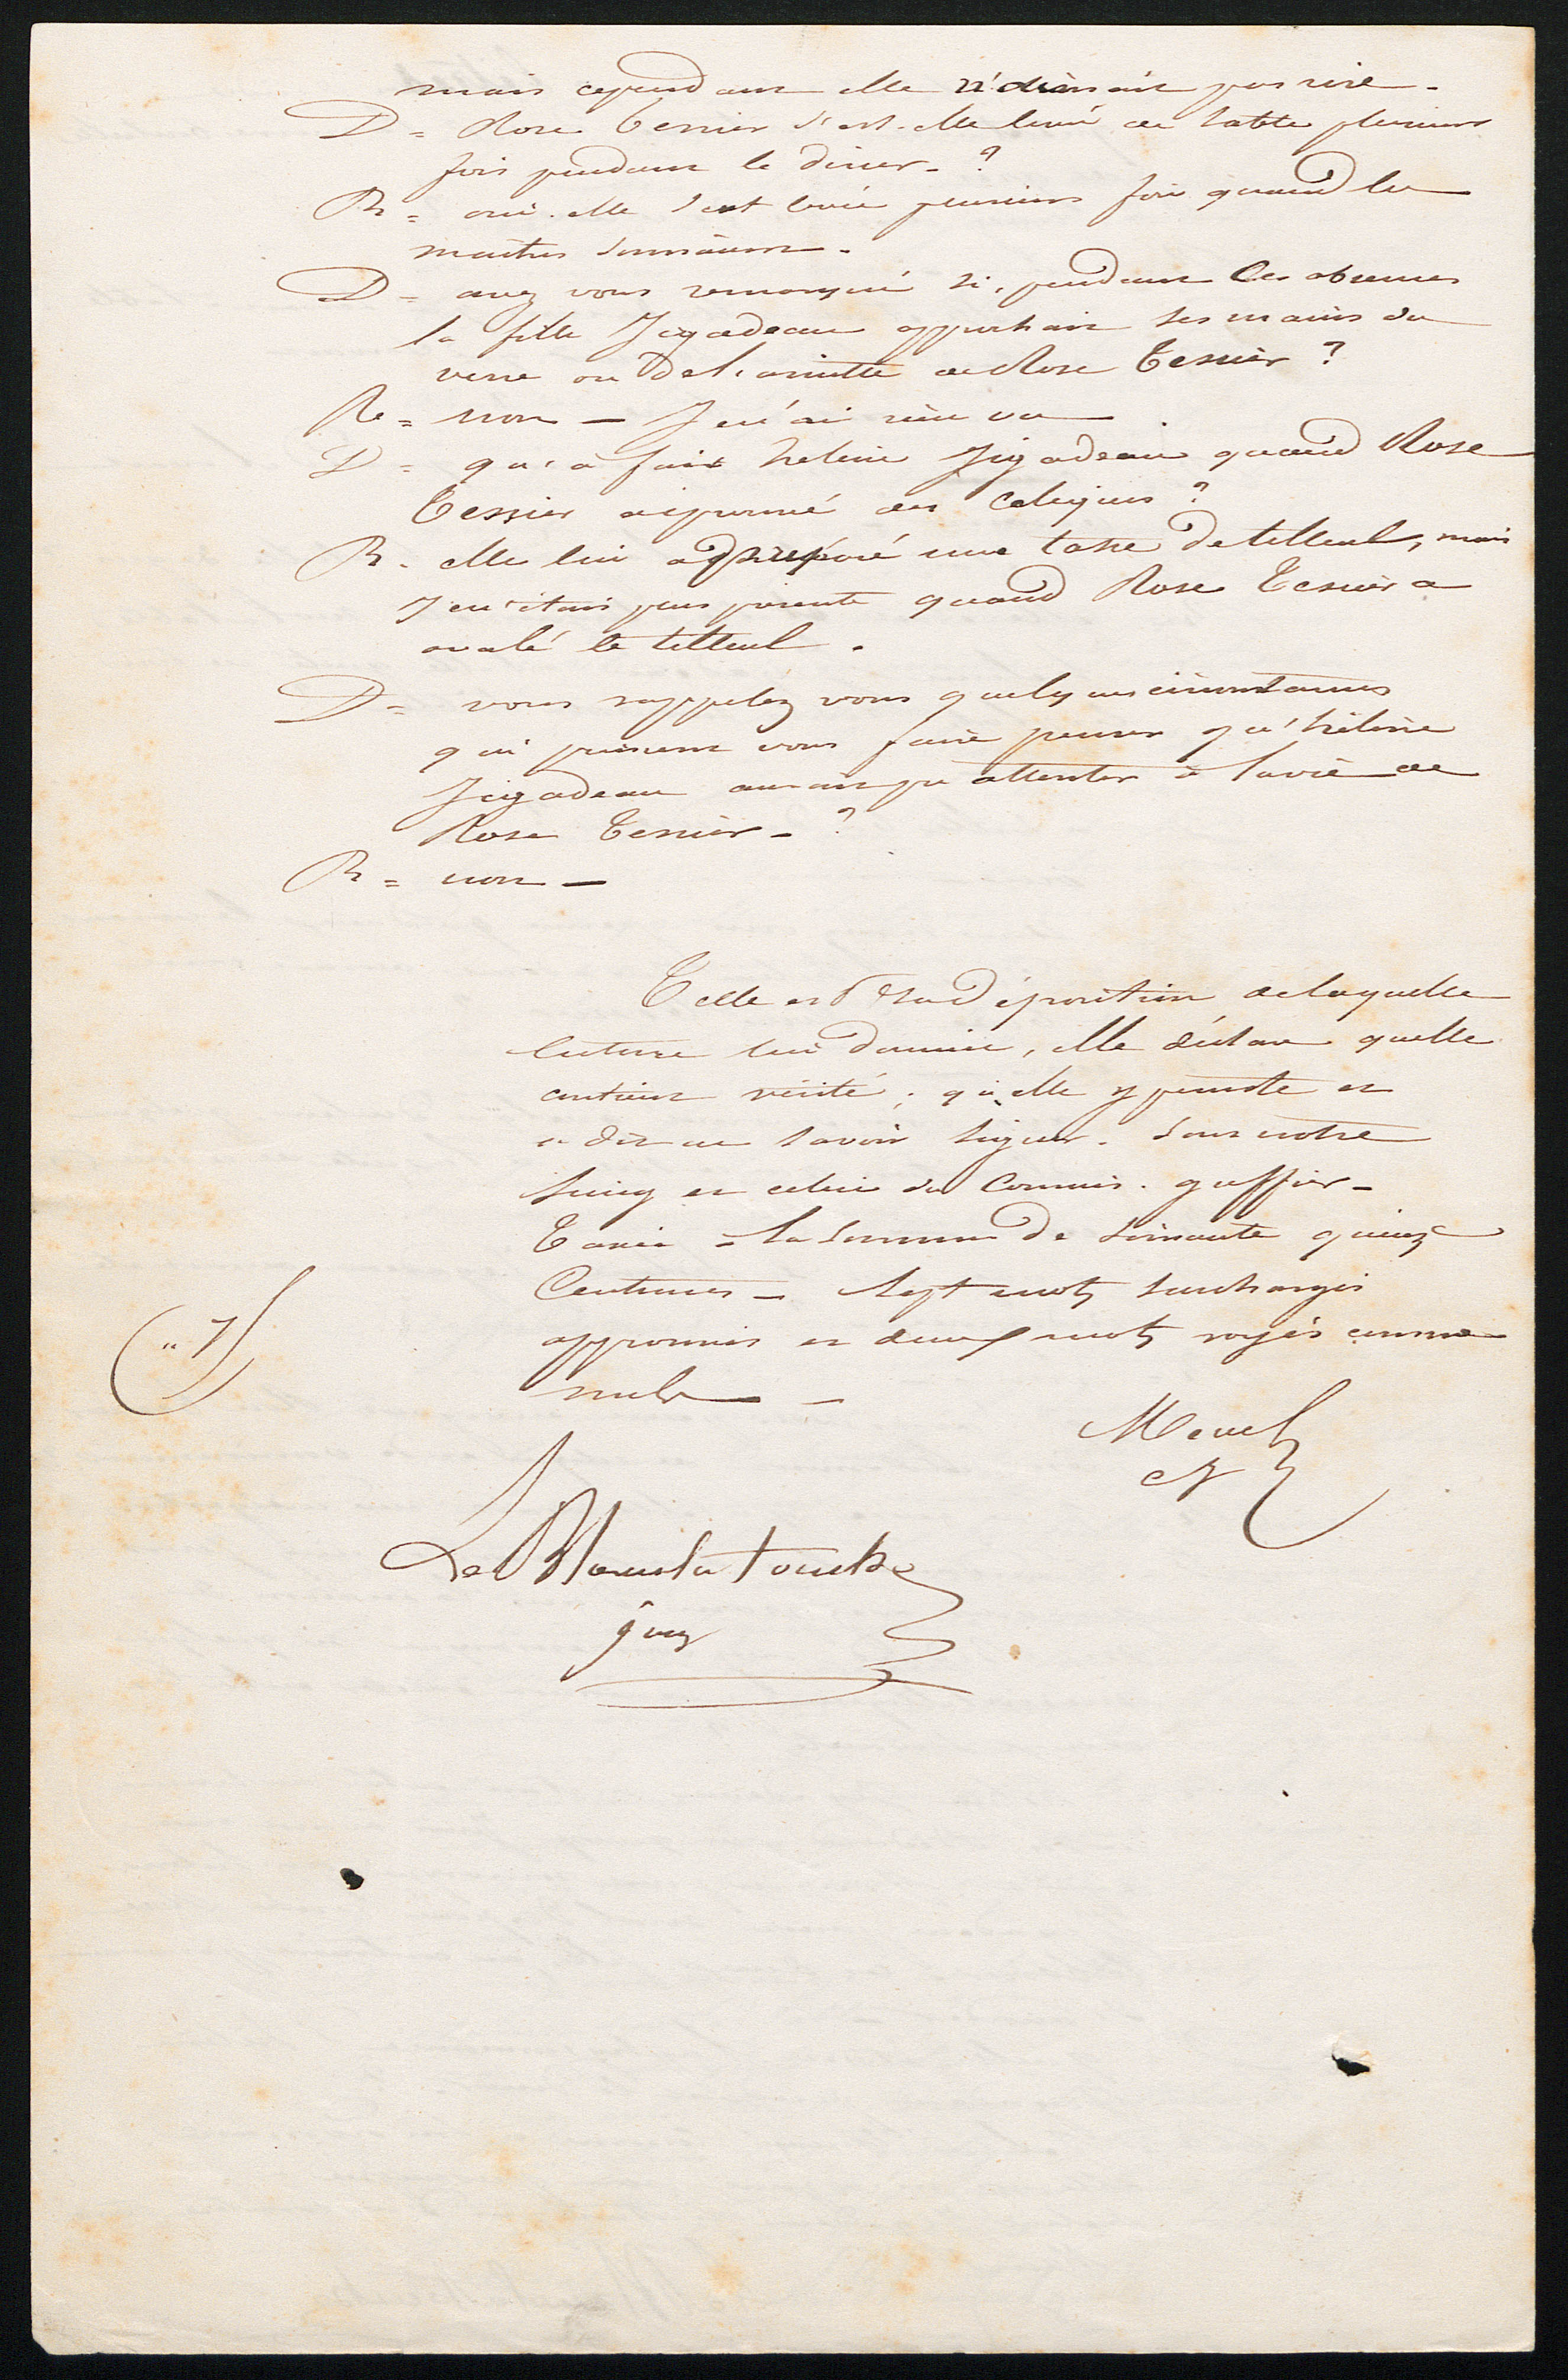 mais cependant elle n'aimait pas rire.
D = Rose Tessier s'est-elle levé de table plusieurs
fois pendant le diner - ?
R = oui. elle s'est levée plusieurs fois quand les
maitres sonnaient.
D = avez vous remarqué si, pendant ces absences
la fille Jégadeau approchait ses mains du
verre ou de l'assiette de Rose Tessier ?
R = non — Je n'ai rien vu
D = qu'a fait helene Jégadeau quand Rose
Tessier a éprouvé des coliques ?
R. elle lui a préparé une tasse de tilleul, mais
je n'étais pas présente quand Rose Tessier a
avalé le tilleul.
D = vous rappelez vous quelques circonstances
qui puissent vous faire penser qu'hélène
Jégadeau aurait pu attenter à la vie de
Rose Tessier - ?
R = non —
Telle est sa déposition de laquelle
lecture lui donnée, elle déclare qu'elle
contient vérité ; qu'elle y persiste et
a dit ne savoir signer. sous notre
seing et celui du Commis. greffier -
Taxé = la somme de soixante quinze
Centimes - Sept mots surchargés
approuvés et deux mots rayés comme
nuls —
" 7
juge